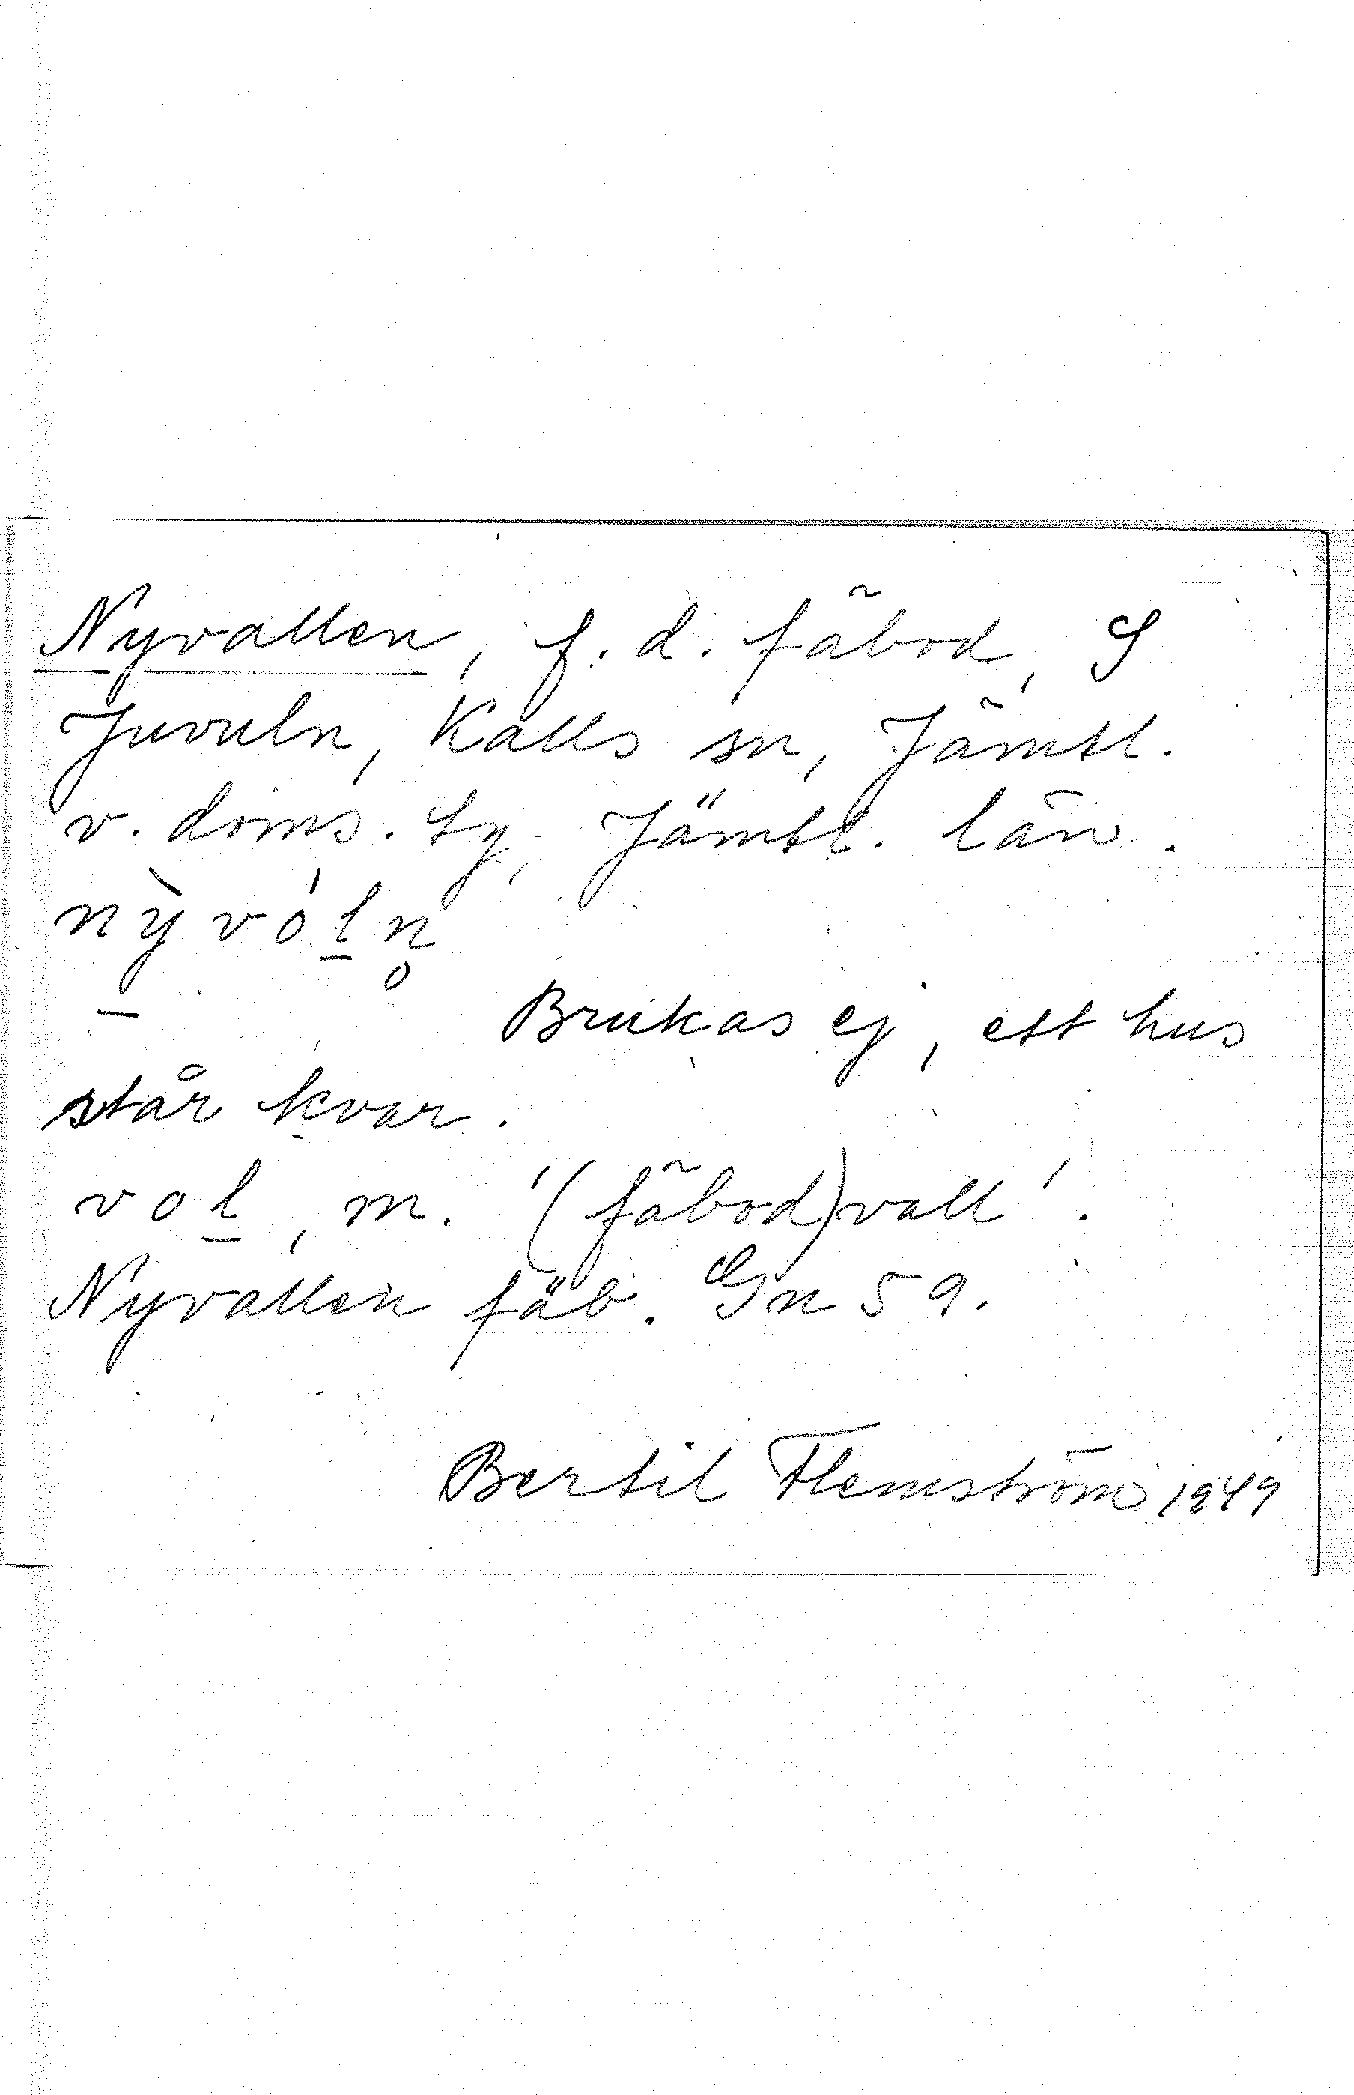 Nyvallen, f. d. fäbod, S
Juvuln, Kalls sn, Jämtl.
v. doms. tg, Jämtl. län.
nỳ̠vól̠n̥
Brukas ej, ett hus
står kvar.
vol̠, m. '(fäbod)vall'.
Nyvallen fäb. Gn 59.
Bertil Flemström 1949